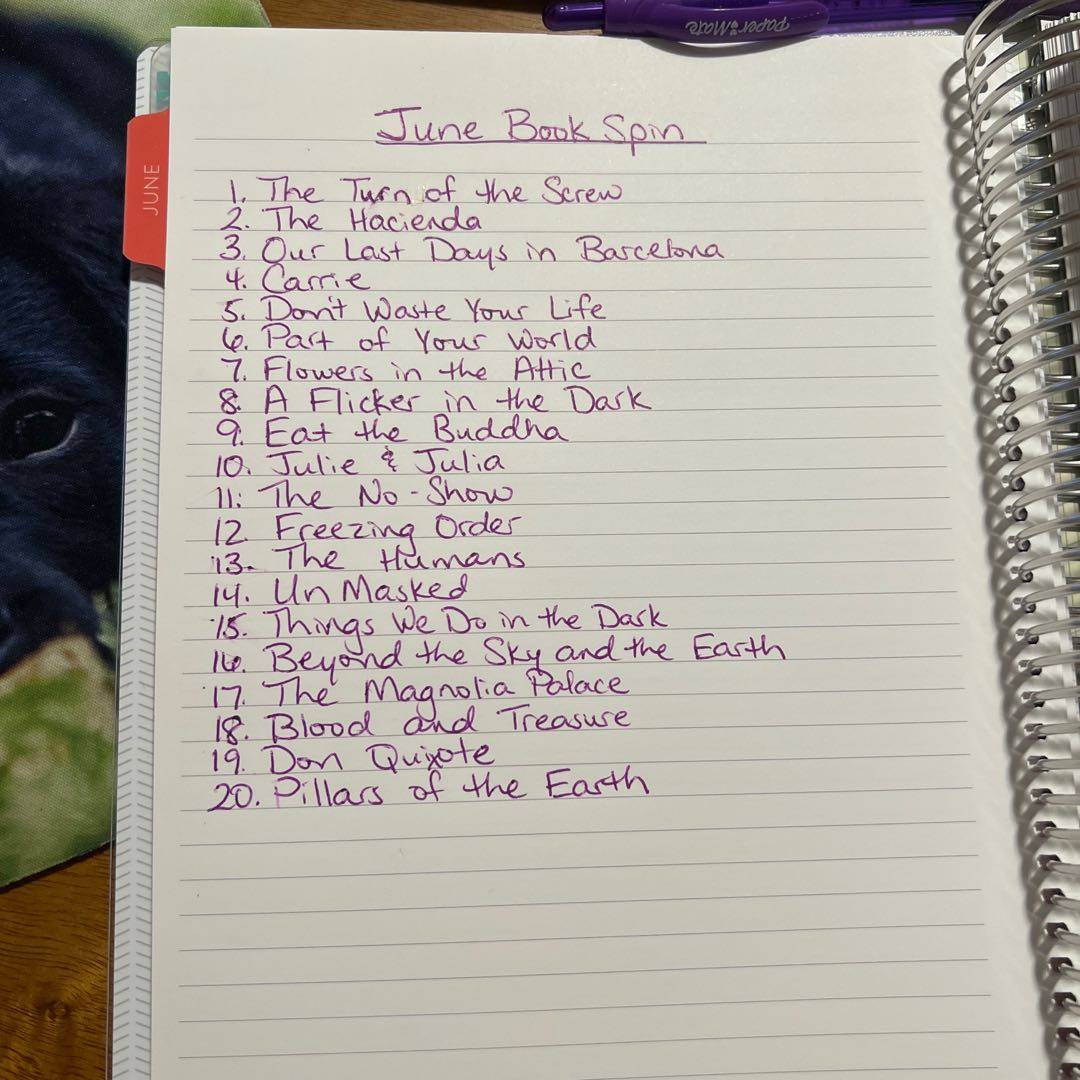 Paper Mate
JUNE
June Book Spin
1. The Turn of the Screw
2. The Hacienda
3. Our Last Days in Barcelona
4. Carrie
5. Don't Waste Your Life
6. Part of Your World
7. Flowers in the Attic
8. A Flicker in the Dark
9. Eat the Buddha
10. Julie & Julia
11. The No-Show
12 Freezing Order
13. The Humans
14. UnMasked
15. Things We Do in the Dark
16. Beyond the Sky and the Earth
17. The Magnolia Palace
18. Blood and Treasure
19. Don Quixote
20. Pillars of the Earth